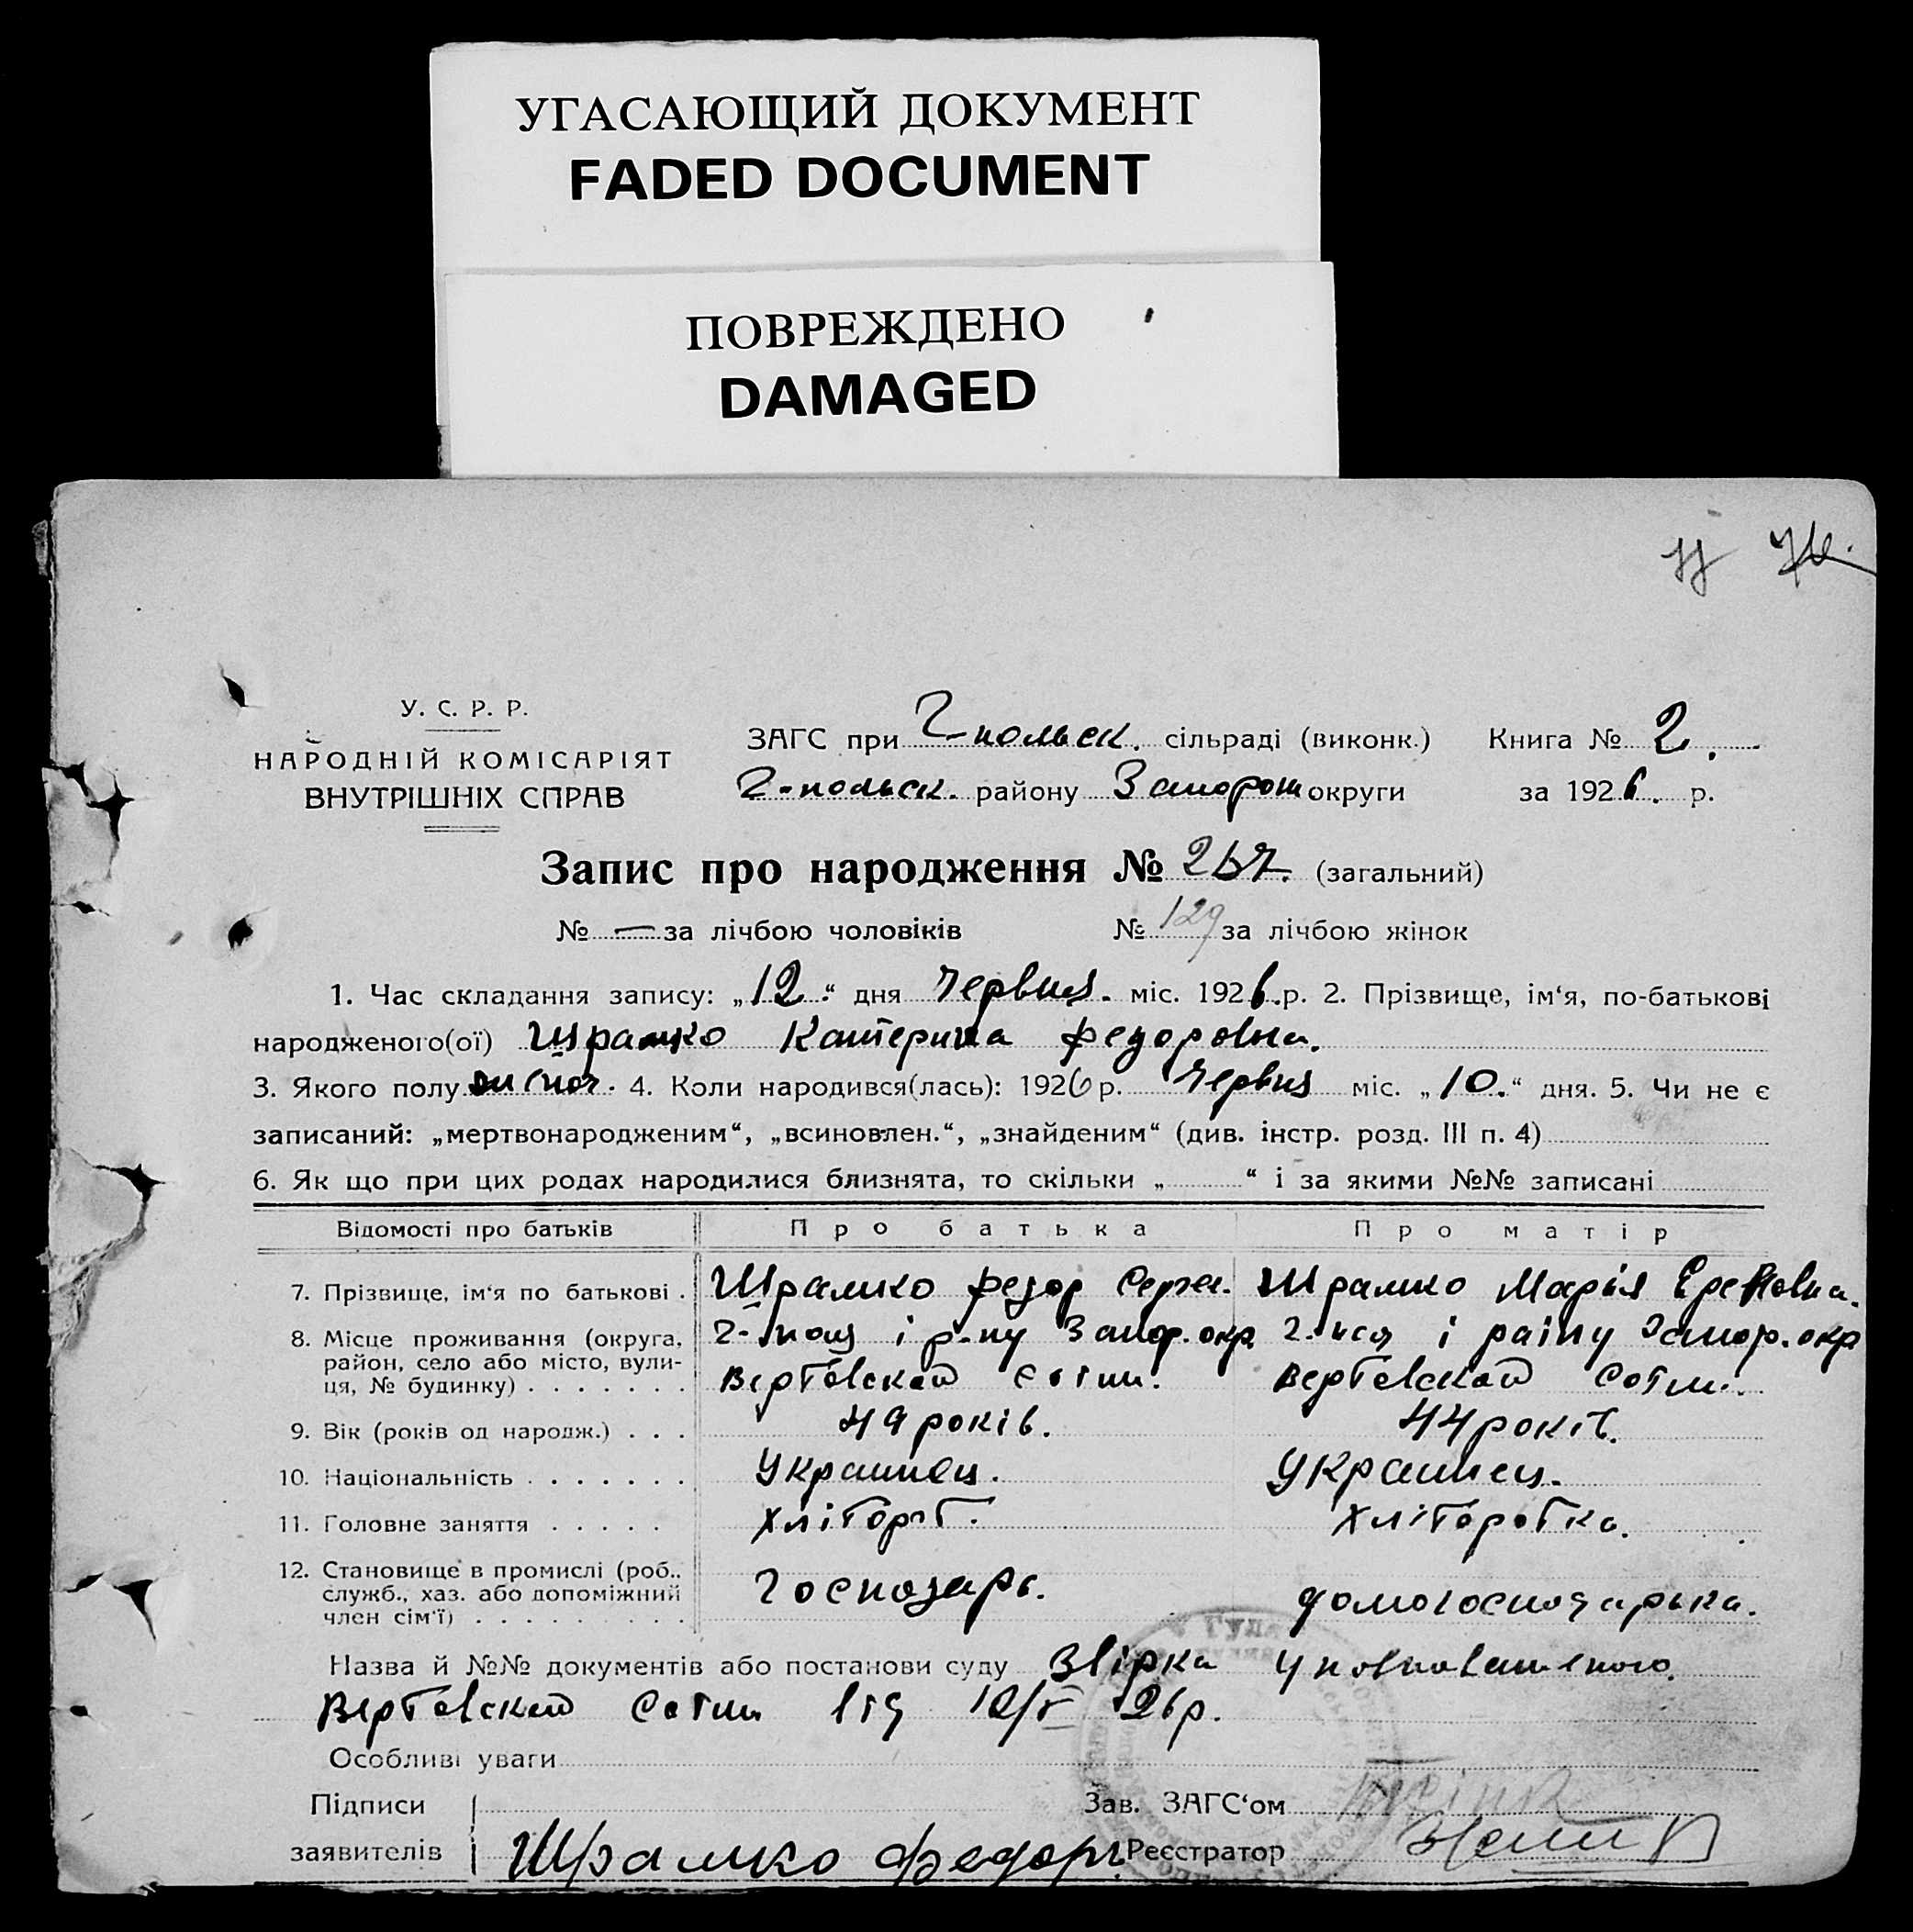 УГАСАЮЩИЙ ДОКУМЕНТ
FADED DOCUMENT
ПОВРЕЖДЕНО
DAMAGED
У. С. Р. Р.
НАРОДНІЙ КОМІСАРІЯТ
ВНУТРІШНІХ СПРАВ
ЗАГС при Г-польск. сільраді (виконк.) Книга № 2.
Г-польск. району Запорож. округи за 1926. р.
Запис про народження № 267. (загальний)
№ — за лічбою чоловіків № 129 за лічбою жінок
1. Час складання запису: „12.“ дня Червня. міс. 1926. р. 2. Прізвище, ім‘я, по-батькові
народженого(ої) Шрамко Катерина Федоровна.
3. Якого полу жіноч. 4. Коли народився(лась): 1926 р. Червня міс. „10.“ дня. 5. Чи не є
записаний: „мертвонародженим“, „всиновлен.“, „знайденим“ (див. інстр. розд. III п. 4)
6. Як що при цих родах народилися близнята, то скільки „ “ і за якими №№ записані
Відомості про батьків Про батька Про матір
7. Прізвище, ім‘я по батькові . Шрамко Федор Шрамко Марія
8. Місце проживання (округа, Г-поля і р-ну Запор. окр. Г. поля і раіну Запор. окр
район, село або місто, вули-
ця, № будинку) . . . . . . . Вербовской Сотни. Вербовской Сотни.
9. Вік (років од народж.) . . . 49 років. 44 років.
10. Національність . . . . . . . Украинец. Украинец.
11. Головне заняття . . . . . Хлібороб. Хлібороб­ка.
12. Становище в промислі (роб.,
служб., хаз. або допоміжний Господарь. домогосподарька.
член сім‘ї) . . . . . . . . .
Назва й №№ документів або постанови суду Звірка уповноваженого
Вербовской Сотни від 26 р.
Особливі уваги
Підписи Зав. ЗАГС‘ом
заявителів Шрамко Федоръ Реєстратор